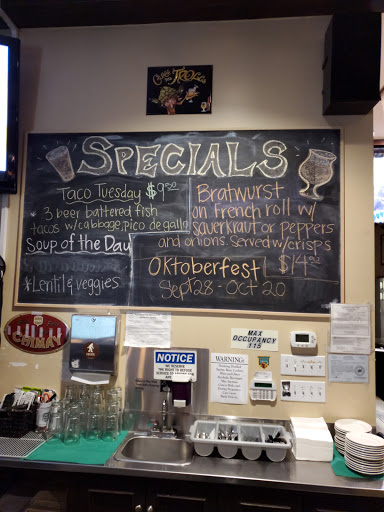 TROLLS
SPECIALS
Taco Tuesday $9.50
* 3 beer battered fish
tacos w/cabbage, pico de gallo
Soup of the Day
*Lentil & veggies
Bratwurst
on French roll w/
sauerkraut or peppers
and onions. Served w/crisps
Oktoberfest! $14.00
Sept 28 - Oct 20
CHIMAY
MAX
OCCUPANCY
115
NOTICE
WE RESERVE
THE RIGHT TO REFUSE
SERVICE TO
WARNING: